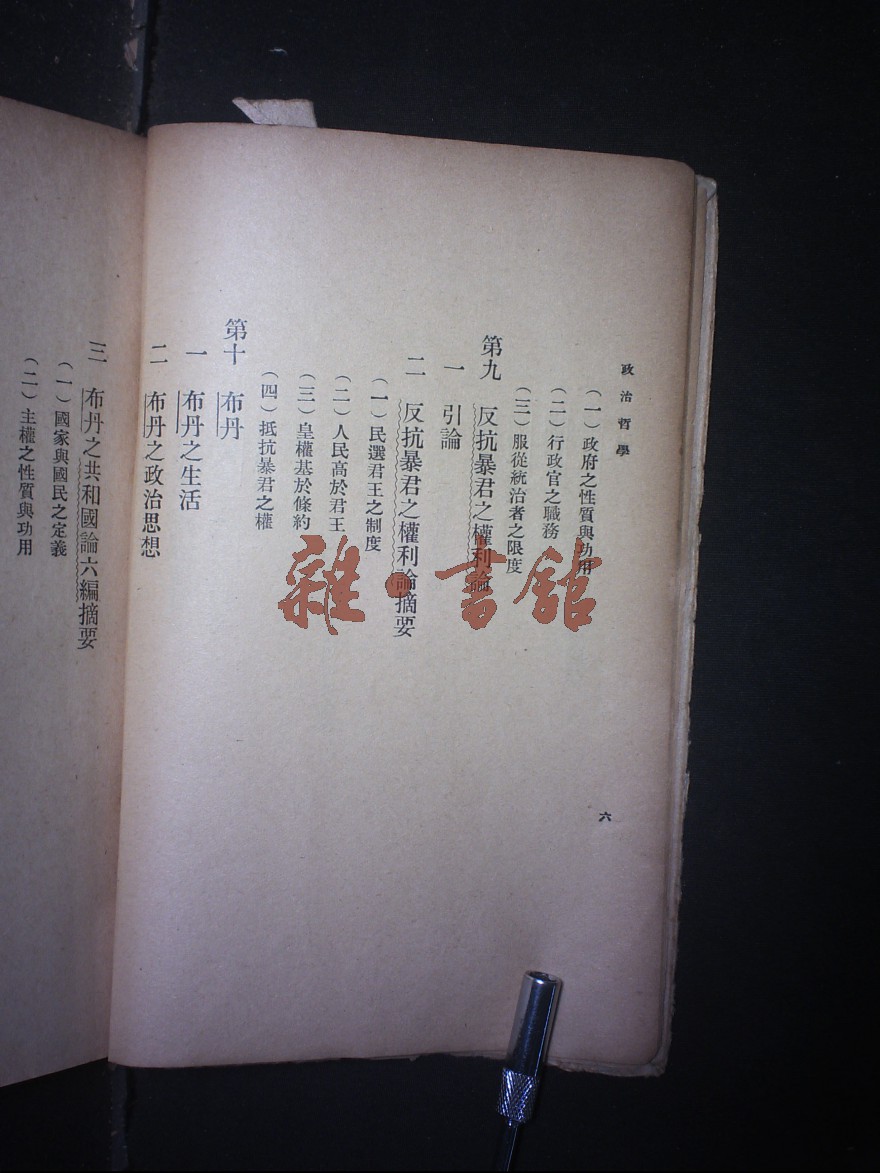 政治哲學
（一）政府之性質與功用
（二）行政官之職務
（三）服從統治者之限度
第九 反抗暴君之權利論
一 引論
二 反抗暴君之權利論摘要
（一）民選君王之制度
（二）人民高於君王
（三）皇權基於條約
（四）抵抗暴君之權
第十 布丹
一 布丹之生活
二 布丹之政治思想
三 布丹之共和國論六編摘要
（一）國家與國民之定義
（二）主權之性質與功用
六
雜·書館